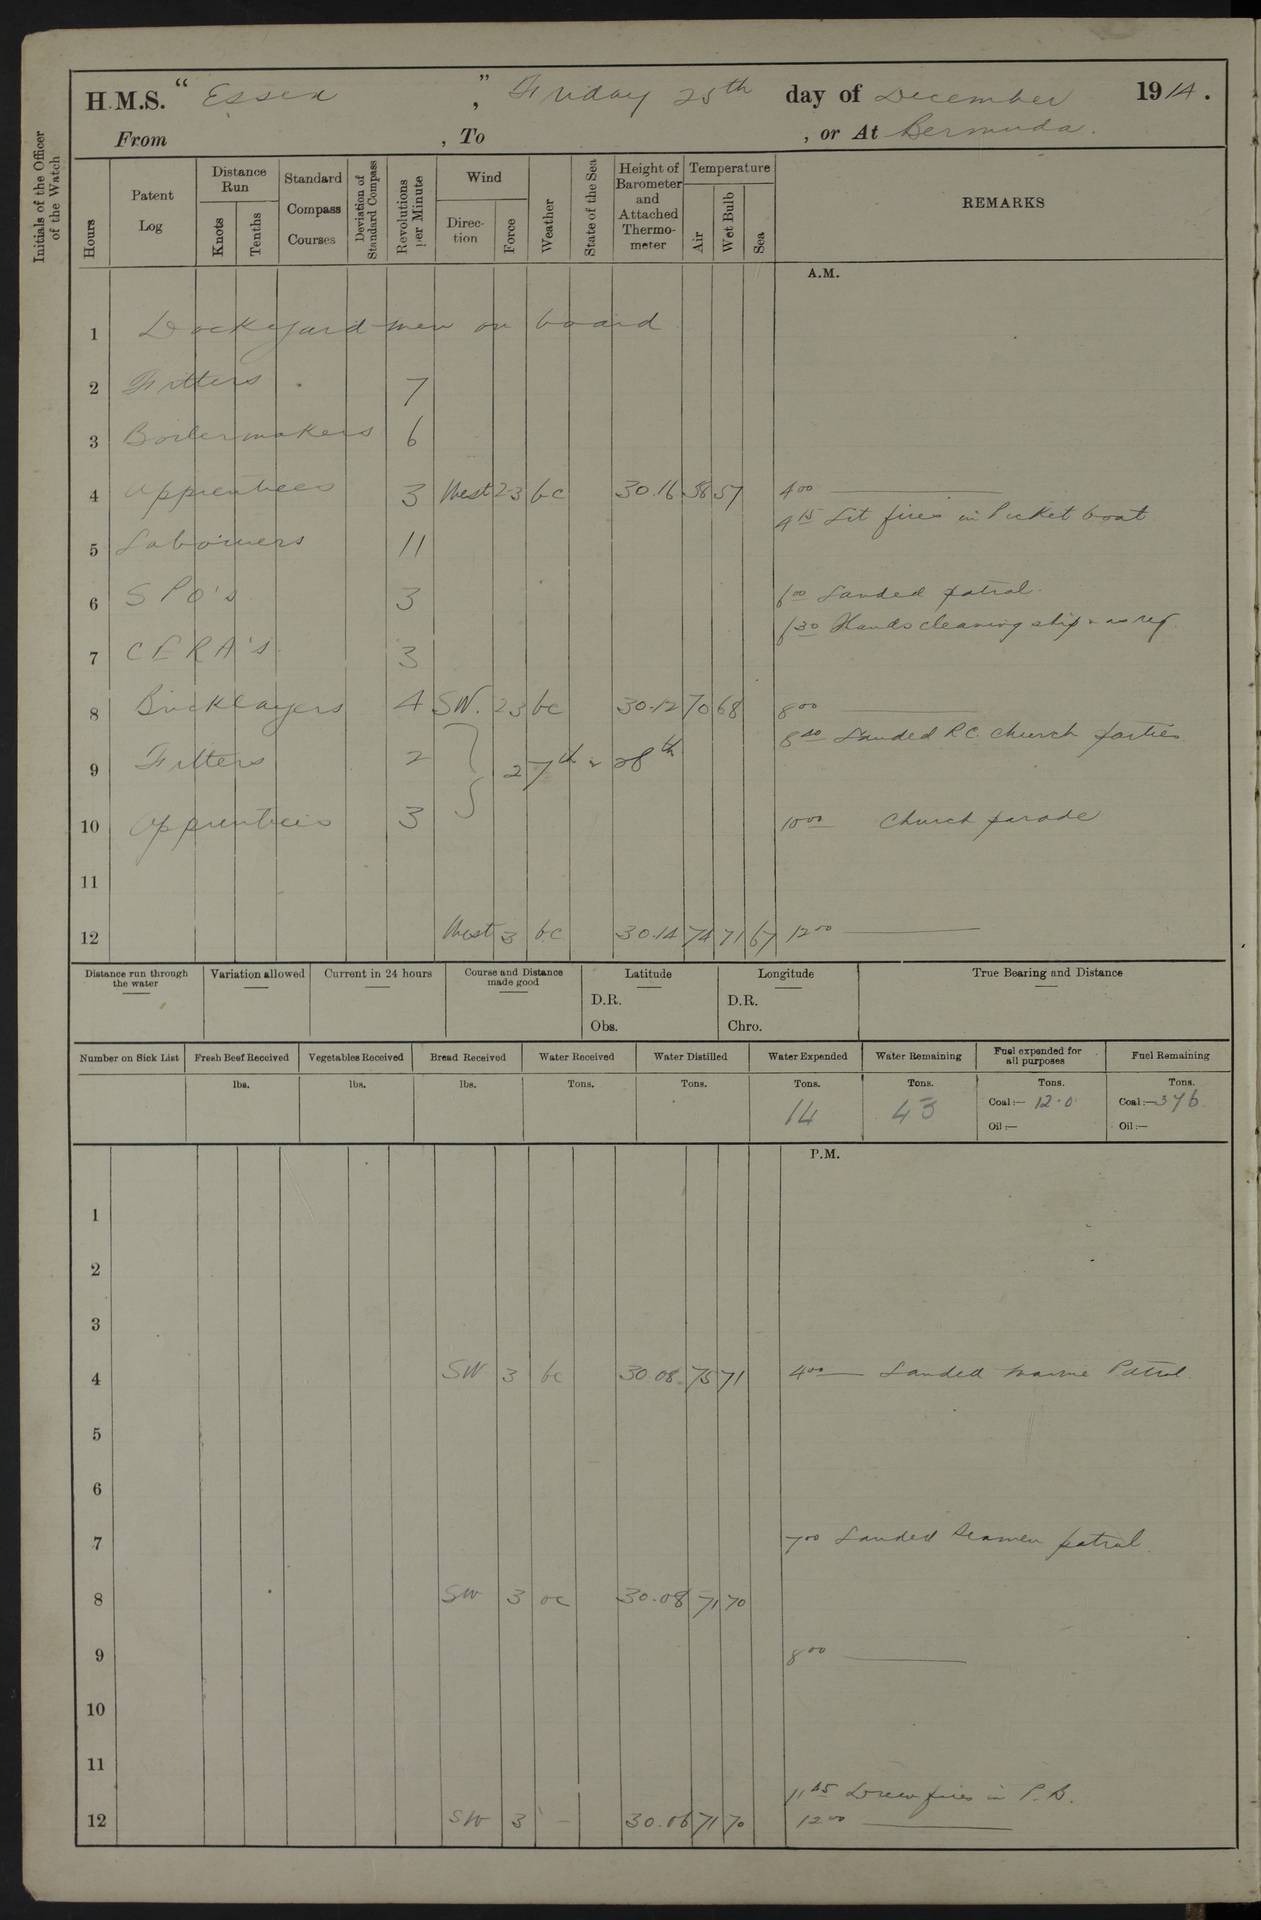 H.M.S. “ Essex ”, Friday 25th day of December 1914.
From , To , or At Bermuda.
Initials of the Officer of the Watch
Hours
Patent Log
Distance Run
Knots
Tenths
Standard Compass Courses
Deviation of Standard Compass
Revolutions per Minute
Wind
Direction
Force
Weather
State of the Sea
Height of Barometer and Attached Thermometer
Temperature
Air
Wet Bulb
Sea
REMARKS
A.M.
1 Dockyard men on board
2 Fitters . 7
3 Boilermakers 6
4 Apprentices 3 West 2-3 bc 30.16 58 57 4 00
4 15 Lit fires in Picket boat
5 Labourers 11
6 S P O's 3 6 00 Landed patrol.
6 30 Hands cleaning ship & as req
7 C E R A's 3
8 Bricklayers 4 SW. 2 3 bc 30.12 70 68 8 00
8 40 Landed R.C. church parties
9 Fitters 2 } 27th & 28th
10 Apprentices 3 10 00 Church parade
11
12 West 3 bc 30.14 74 71 67 12 00
Distance run through the water
Variation allowed
Current in 24 hours
Course and Distance made good
Latitude
D.R.
Obs.
Longitude
D.R.
Chro.
True Bearing and Distance
Number on Sick List
Fresh Beef Received
lbs.
Vegetables Received
lbs.
Bread Received
lbs.
Water Received
Tons.
Water Distilled
Tons.
Water Expended
Tons.
14
Water Remaining
Tons.
43
Fuel expended for all purposes
Tons.
Coal:— 12.0
Oil:—
Fuel Remaining
Tons.
Coal:— 376
Oil:—
P.M.
1
2
3
4 SW 3 bc 30.08 75 71 4 00 — Landed marine Patrol.
5
6
7 7 00 Landed Seamen patrol.
8 SW 3 oc 30.08 71 70
9 8 00
10
11
11 45 Drew fires in P.B.
12 SW 3 - 30.06 71 70 12 00